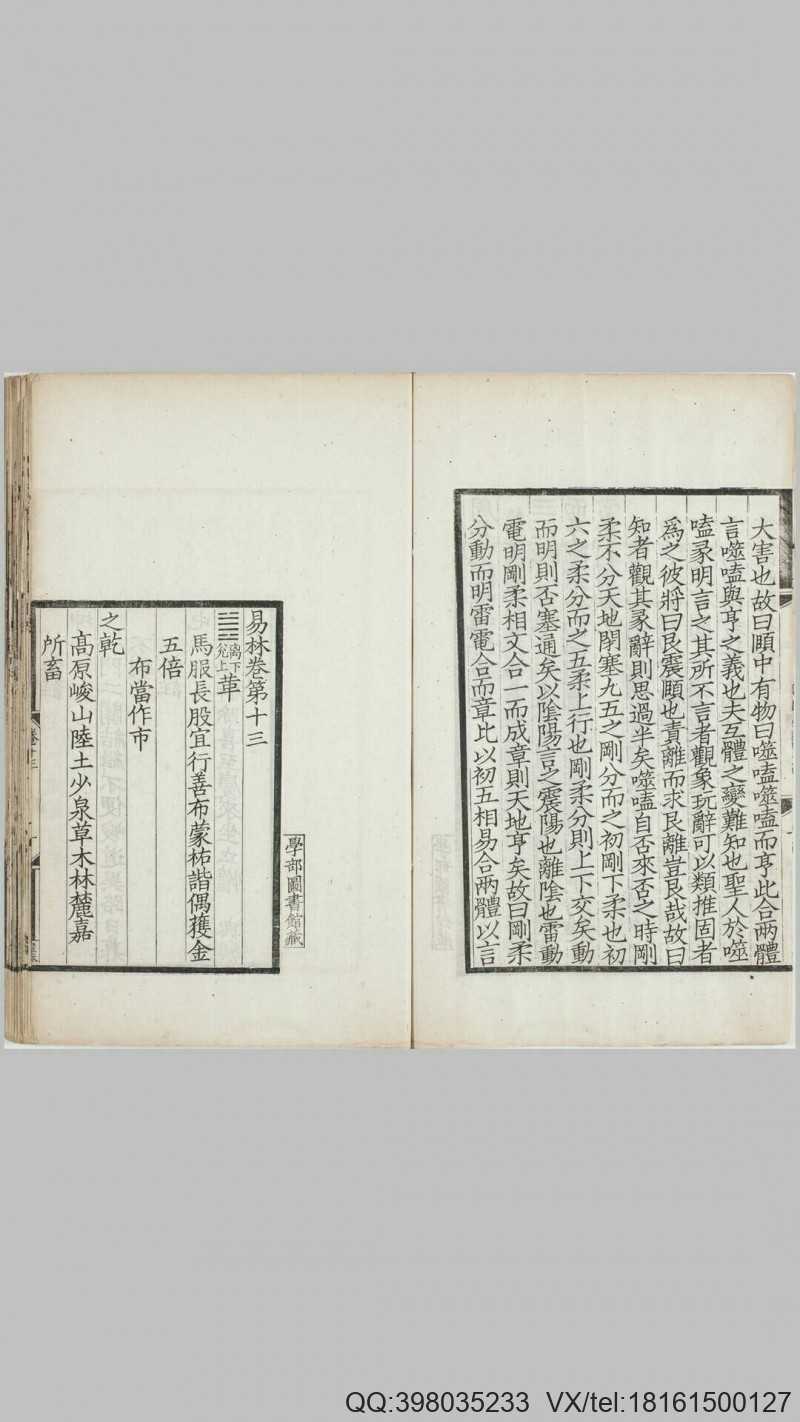 大害也故曰頤中有物曰噬嗑噬嗑而亨此合兩體
言噬嗑與亨之義也夫互體之變難知也聖人於噬
嗑彖明言之其所不言者觀象玩辭可以類推固者
爲之彼將曰艮震頤也責離而求艮離豈艮哉故曰
知者觀其彖辭則思過半矣噬嗑自否來否之時剛
柔不分天地閉塞九五之剛分而之初剛下柔也初
六之柔分而之五柔上行也剛柔分則上下交矣動
而明則否塞通矣以陰陽言之震陽也離陰也雷動
電明剛柔相文合一而成章則天地亨矣故曰剛柔
分動而明雷電合而章此以初五相易合兩體以言
學部圖書館藏
易林卷第十三
離下
兌上
革
馬服長股宜行善布蒙祐諧偶獲金
五倍
布當作市
之乾
高原峻山陸土少泉草木林麓嘉
所畜
卷十三
QQ:398035233 VX/tel:18161500127